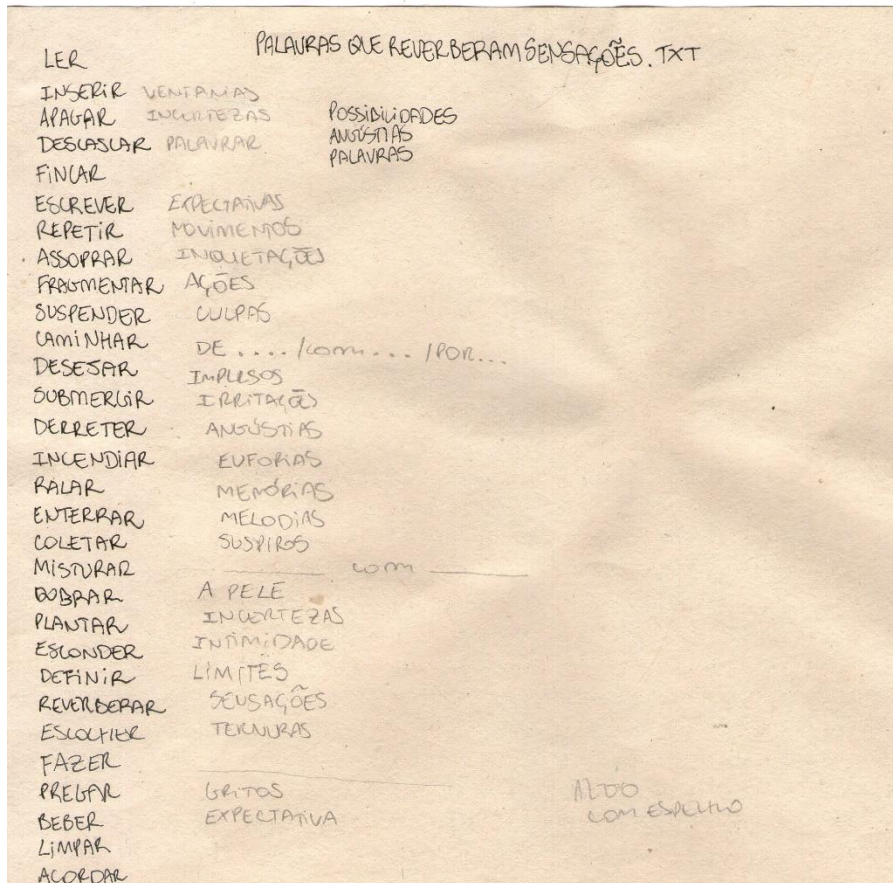 PALAVRAS QUE REVERBERAM SENSAÇÕES.TXT
LER
INSERIR VENTANIAS
APAGAR INCERTEZAS
DESCASCAR PALAVRAR
POSSIBILIDADES
ANGÚSTIAS
PALAVRAS
FINCAR
ESCREVER EXPECTATIVAS
REPETIR MOVIMENTOS
ASSOPRAR INQUIETAÇÕES
FRAGMENTAR AÇÕES
SUSPENDER CULPAS
CAMINHAR DE .... /COM... /POR...
DESEJAR IMPULSOS
SUBMERGIR IRRITAÇÕES
DERRETER ANGÚSTIAS
INCENDIAR EUFORIAS
RALAR MEMÓRIAS
ENTERRAR MELODIAS
COLETAR SUSPIROS
MISTURAR ______ COM ______
DOBRAR A PELE
PLANTAR INCERTEZAS
ESCONDER INTIMIDADE
DEFINIR LIMITES
REVERBERAR SENSAÇÕES
ESCOLHER TERNURAS
FAZER ______
PREGAR GRITOS
BEBER EXPECTATIVA
LIMPAR
ACORDAR
COM ESPELHO